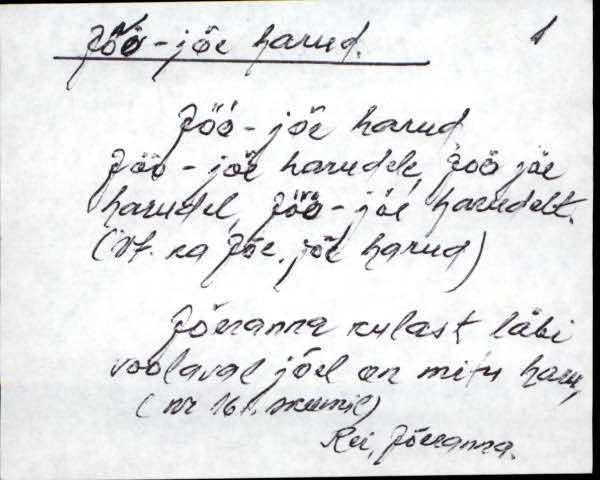 Jõõ-jõe harud. 1
Jõõ-jõe harud
Jõõ-jõe harudele, Jõõ jõe
harudel, Jõõ-jõe harudelt.
(Vt. ka Jõe, jõe harud)
Jõeranna külast läbi
voolaval jõel on mitu haru,
(nr 16
Jõeranna.